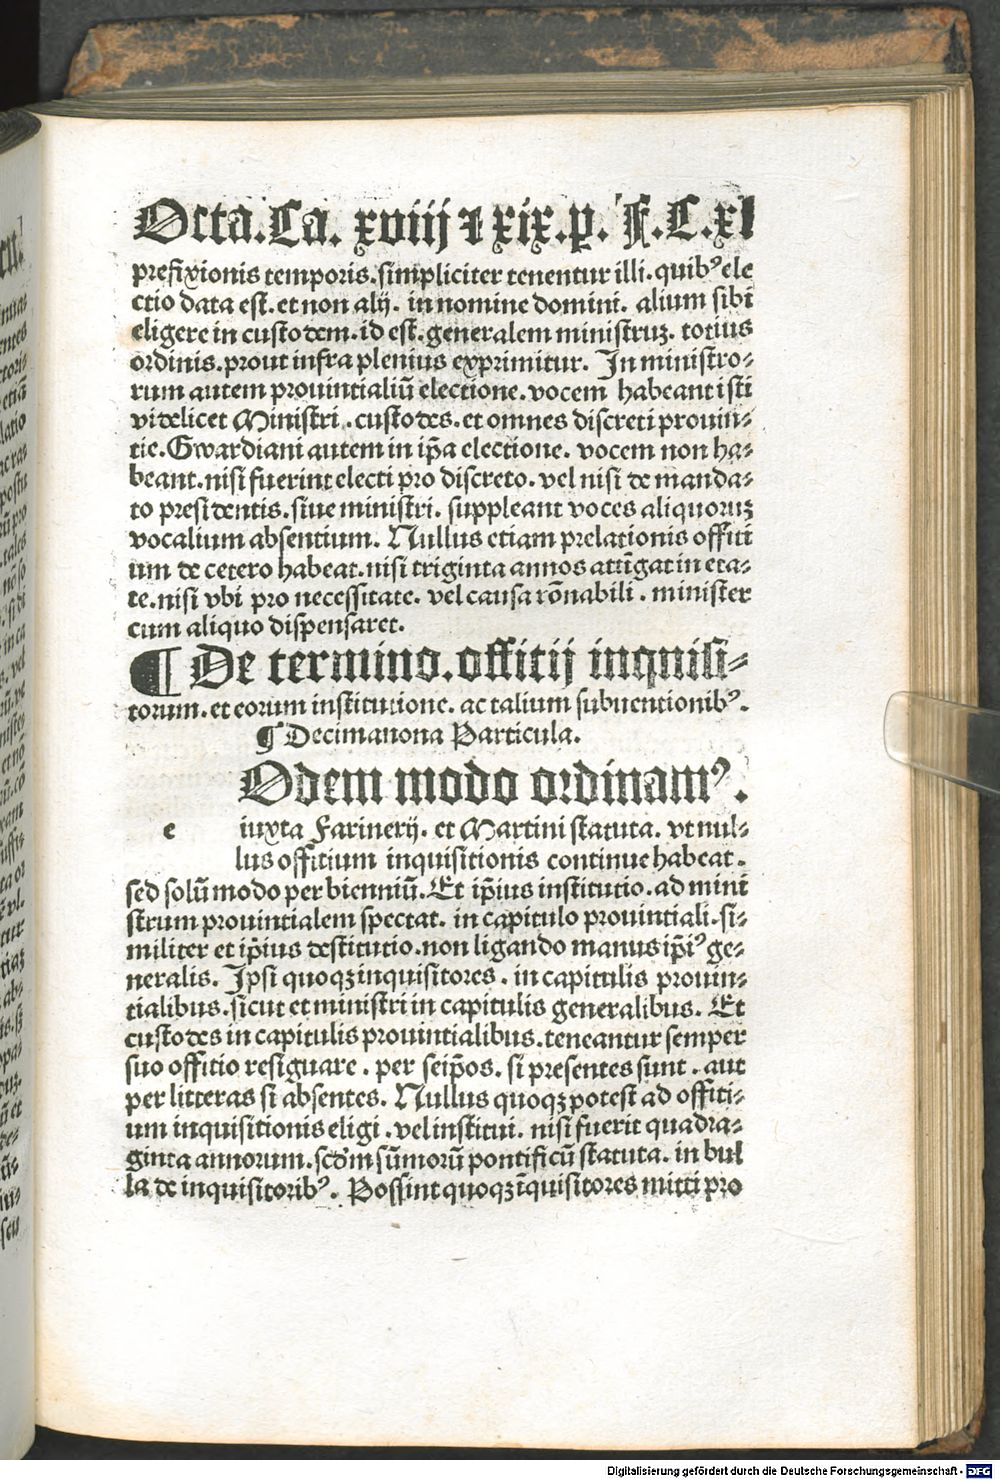 Octa.Ca. xviiij ⁊ xix.p. F.C.xl
prefixionis temporis.simpliciter tenentur illi.quibꝰ ele
ctio data est.et non alij. in nomine domini. alium sibi
eligere in custodem.id est.generalem ministruꝫ. totius
ordinis.prout infra plenius exprimitur. In ministro⸗
rum autem prouintialiū electione.vocem habeant isti
videlicet Ministri.custodes.et omnes discreti prouin⸗
tie.Gwardiani autem in ip̄a electione. vocem non ha⸗
beant.nisi fuerint electi pro discreto. vel nisi de manda⸗
to presidentis.siue ministri. suppleant voces aliquoruꝫ
vocalium absentium. Nullus etiam prelationis offiti
um de cetero habeat.nisi triginta annos attīgat in eta⸗
te.nisi vbi pro necessitate. vel causa rōnabili. minister
cum aliquo dispensaret.
¶ De termino.offitij inquisi⸗
torum.et eorum institutione. ac talium subuentionibꝰ.
¶ Decimanona Particula.
Odem modo ordinamꝰ.
e iuxta Farinerij. et Martini statuta. vt nul⸗
lus offitium inquisitionis continue habeat.
sed solū modo per bienniū. Et ip̄ius institutio.ad mini
strum prouintialem spectat. in capitulo prouintiali.si⸗
militer et ip̄ius destitutio.non ligando manus ip̄iꝰ ge⸗
neralis. Ipsi quoqꝫ inquisitores. in capitulis prouin⸗
tialibus.sicut et ministri in capitulis generalibus. Et
custodes in capitulis prouintialibus.teneantur semper
suo offitio resignare. per seip̄os. si presentes sunt. aut
per litteras si absentes. Nullus quoqꝫ potest ad offiti⸗
um inquisitionis eligi.vel institui. nisi fuerit quadra⸗
ginta annorum.scd̄m sūmorū pontificū statuta. in bul
la de inquisitoribꝰ. Possint quoqꝫ īquisitores mitti pro
Digitalisierung gefördert durch die Deutsche Forschungsgemeinschaft - DFG